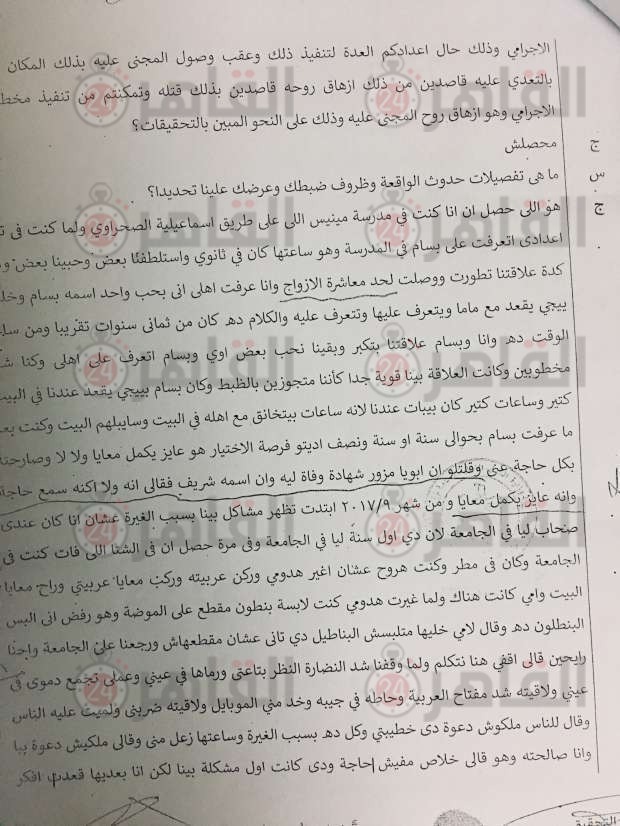 الاجرامي وذلك حال اعدادكم العدة لتنفيذ ذلك وعقب وصول المجنى عليه بذلك المكان
بالتعدي عليه قاصدين من ذلك ازهاق روحه قاصدين بذلك قتله وتمكنتم من تنفيذ
الاجرامي وهو ازهاق روح المجنى عليه وذلك على النحو المبين بالتحقيقات؟
ج محصلش
س ما هى تفصيلات حدوث الواقعة وظروف ضبطك وعرضك علينا تحديدا؟
ج هو اللى حصل ان انا كنت في مدرسة مينيس اللى على طريق اسماعيلية الصحراوي ولما كنت فى
اعدادى اتعرفت على بسام في المدرسة وهو ساعتها كان في ثانوي واستلطفنا بعض وحبينا بعض
كدة علاقتنا تطورت ووصلت لحد معاشرة الازواج وانا عرفت اهلى انى بحب واحد اسمه بسام
ييجي يقعد مع ماما ويتعرف عليها وتتعرف عليه والكلام دهـ كان من ثمانى سنوات تقريبا ومن
الوقت دهـ وانا وبسام علاقتنا بتكبر وبقينا نحب بعض اوي وبسام اتعرف على اهلى وكنا
مخطوبين وكانت العلاقة بينا قوية جدا كأننا متجوزين بالظبط وكان بسام بييجي يقعد عندنا في
كتير وساعات كتير كان بيبات عندنا لانه ساعات بيتخانق مع اهله في البيت وسايبلهم البيت وكنت
ما عرفت بسام بحوالى سنة او سنة ونصف اديتو فرصة الاختيار هو عايز يكمل معايا ولا لا وصارحته
بكل حاجة عنى وقلتلو ان ابويا مزور شهادة وفاة ليه وان اسمه شريف فقالى انه ولا اكنه سمع حاجة
وانه عايز يكمل معايا و من شهر ٢٠١٧/٩ ابتدت تظهر مشاكل بينا بسبب الغيرة عشان انا كان عندى
صحاب ليا في الجامعة لان دي اول سنة ليا في الجامعة وفى مرة حصل ان فى الشتا اللى فات كنت فى
الجامعة وكان فى مطر وكنت هروح عشان اغير هدومي وركن عربيته وركب معايا عربيتي وراح معايا
البيت وامي كانت هناك ولما غيرت هدومي كنت لابسة بنطون مقطع على الموضة وهو رفض انى البس
البنطلون دهـ وقال لامي خليها متلبسش البناطيل دي تانى عشان مقطعهاش ورجعنا على الجامعة واحنا
رايحين قالى اقفي هنا نتكلم ولما وقفنا شد النضارة النظر بتاعتى ورماها في عيني وعملى تجمع دموى في
عيني ولاقيته شد مفتاح العربية وحاطه في جيبه وخد مني الموبايل ولاقيته ضربنى ولميت عليه الناس
وقال للناس ملكوش دعوة دى خطيبتي وكل دهـ بسبب الغيرة وساعتها زعل منى وقالى ملكيش دعوة بيا
وانا صالحته وهو قالى خلاص مفيش حاجة ودى كانت اول مشكلة بينا لكن انا بعديها قعدت افكر
القاهرة 24
التحقيق